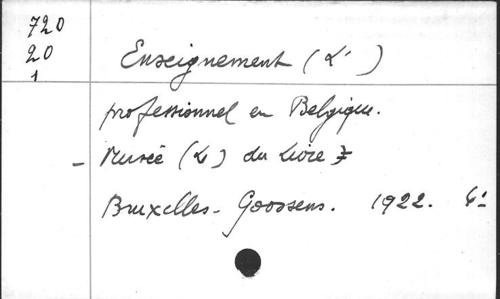 720
20
1
Enseignement (L')
professionnel en Belgique.
- Musée (Le) du Livre
Bruxelles - Goossens. 1922.